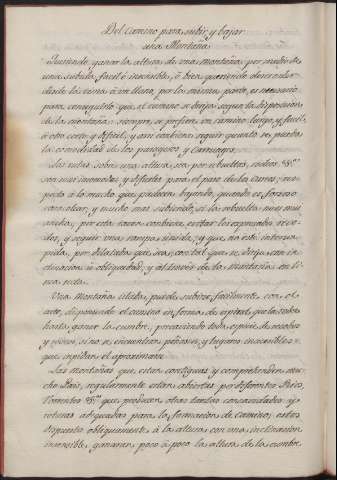 Del Camino para subir, y bajar
una Montaña.
Queriendo ganar la altura de una montaña por medio de
una subida facil è insensible, ò bien queriendo descender
desde la cima à un llano, por la misma parte, es necesario
para conseguirlo que el camino se dirija segun la disposicion
de la montaña: siempre se prefiere un camino largo, y facil,
à otro corto y dificil, y asi combiene seguir quanto se pueda
la comodidad de los pasageros y Carruages.
Las subidas sobre una altura, sea por rebueltas, codos &ª
son mas incomodas y dificiles para el paso de los Carros, res-
pecto à lo mucho que padecen bajando, quando es forzoso
y mucho mas subiendo, si la rebuelta no es muy
ancha; por esta razon combiene evitar los expresados reco-
dos, y seguir una rampa unida, y que no esté interrum-
pida, por dilatada que sea, con tal que se dirija con in-
clinacion ù obliquidad, y al traves de la montaña en li-
nea recta.
Una Montaña aislada, puede subirse facilmente con el
arte, disponiendo el camino en forma de espiral, que la rodee
hasta ganar la cumbre, precaviendo toda especie de recodos
y rodeos, si no se encuentran peñascos, y lugares inaccesibles
que impidan el aproximarse.
Las Montañas que estan contiguas y comprehenden mu-
cho Pais, regularmente estan abiertas por diferentes Rios,
Torrentes &ª que producen otras tantas concavidades y
roturas adequadas para la formacion de caminos; estos
dispuestos obliquamente à la altura con una inclinacion
insensible, ganaran poco à poco la altura de la cumbre